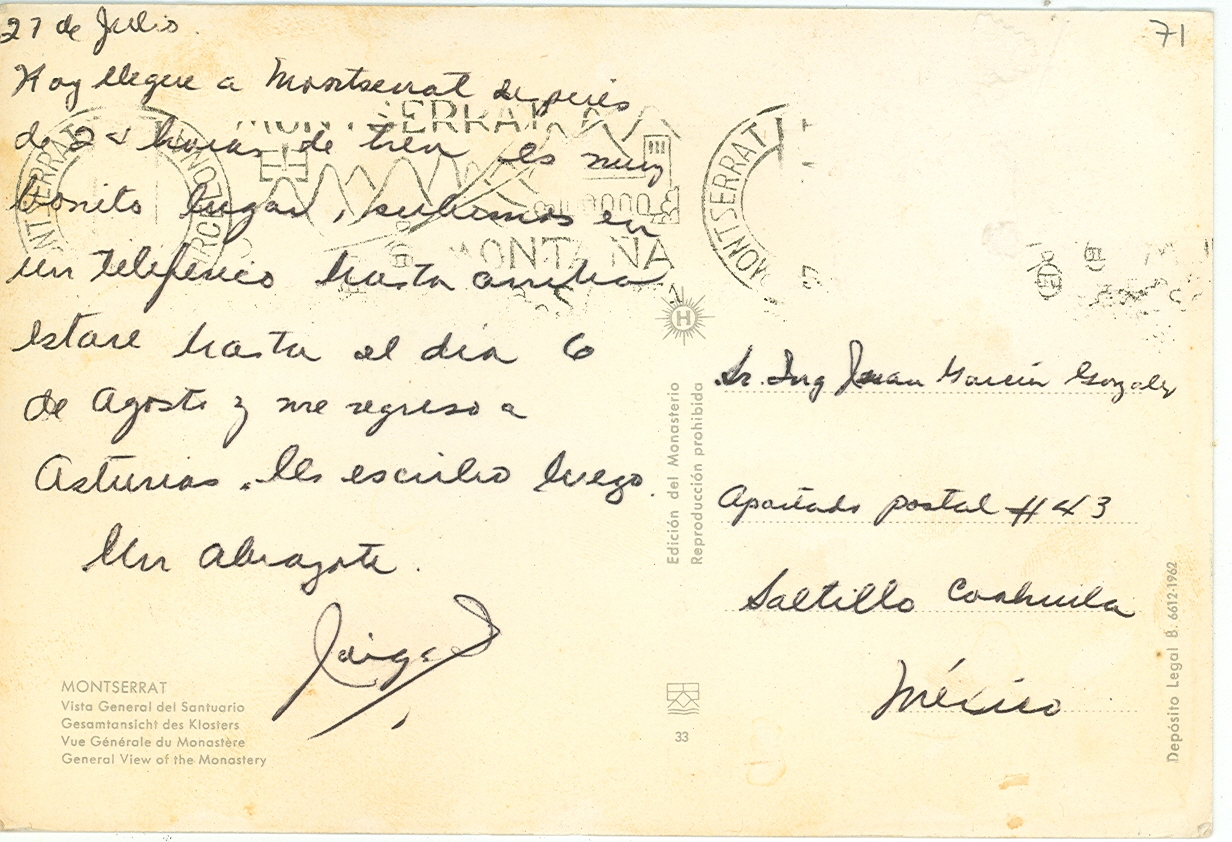 27 de Julio.
71
Hoy llegue a Montserrat despues
de 24 horas de tren es muy
bonito lugar, subimos en
un teleferico hasta arriba
estare hasta el dia 6
de Agosto y me regreso a
Asturias. les escribo luego.
Un abrazote.
MONTSERRAT
MONTAÑA
MONTSERRAT
BARCELONA
MONTSERRAT
H
Sr. Ing Juan Garcia Gonzalez
Apartado postal #43
Saltillo Coahuila
México
Edición del Monasterio
Reproducción prohibida
Depósito Legal B. 6612-1962
MONTSERRAT
Vista General del Santuario
Gesamtansicht des Klosters
Vue Générale du Monastère
General View of the Monastery
33